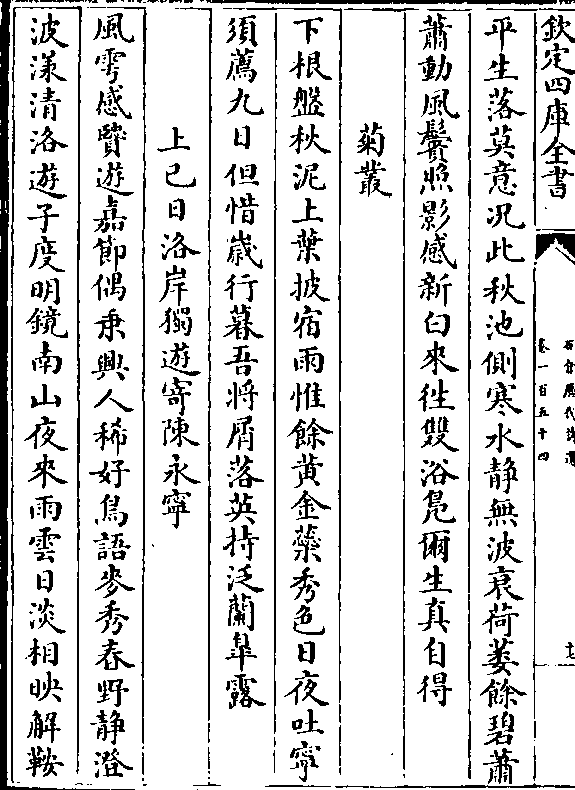 欽定四庫全書
石倉歷代詩選
卷一百五十四
平生落莫意况此秋池側寒水静無波衰荷萎餘碧蕭
蕭動風鬢照影感新白來徃雙浴鳬爾生真自得
菊叢
下根盤秋泥上葉披宿雨惟餘黄金蘂秀色日夜吐寧
須薦九日但惜嵗行暮吾將屑落英持泛蘭臯露
上巳日洛岸獨遊寄陳永寧
風雩感覽遊嘉節偶乗興人稀好鳥語麥秀春野静澄
波漾清洛遊子度明鏡南山夜來雨雲日淡相映解鞍